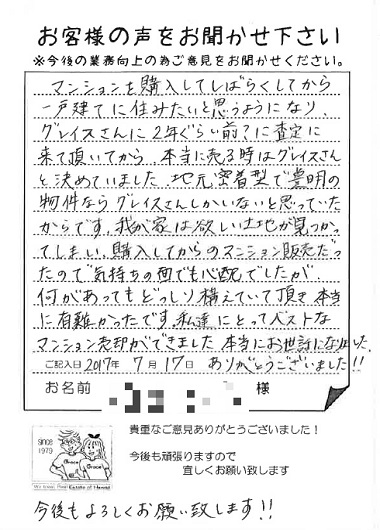 お客様の声をお聞かせ下さい
※今後の業務向上の為ご意見をお聞かせください。
マンションを購入してしばらくしてから
一戸建てに住みたいと思うようになり、
グレイスさんに2年ぐらい前に査定に
来て頂いてから、本当に売る時はグレイスさん
と決めていました。地元密着型で豊明の
物件ならグレイスさんしかいないと思っていた
からです。我が家は欲しい土地が見つかっ
てしまい、購入してからのマンション販売だっ
たので気持ちの面でも心配でしたが
何があってもどっしり構えていて頂き本当
に有難かったです。私達にとってベストな
マンション売却ができました。本当にお世話になりました。
ご記入日 2017年 7月 17日 ありがとうございました!!
お名前 様
since
1979
Grace
Grace
貴重なご意見ありがとうございました！
今後も頑張りますので
宜しくお願い致します
今後もよろしくお願い致します!!